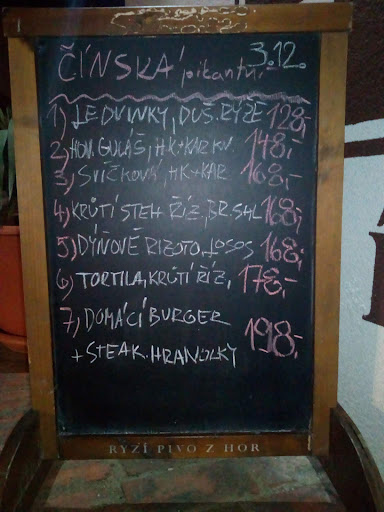 ČÍNSKÁ pikantní 3.12.
1) LEDVINKY, DUŠ. RÝŽE 128,-
2) HOV. GULÁŠ, HK+KAR.KN. 148,-
3) SVÍČKOVÁ, HK+KAR 168,-
4) KRŮTÍ STEH. ŘÍZ, BR. SAL 168,-
5) DÝŇOVÉ RIZOTO, LOSOS 168,-
6) TORTILA, KRŮTÍ ŘÍZ, 178,-
7) DOMÁCÍ BURGER
+ STEAK. HRANOLKY 198,-
RÝZÍ PIVO Z HOR